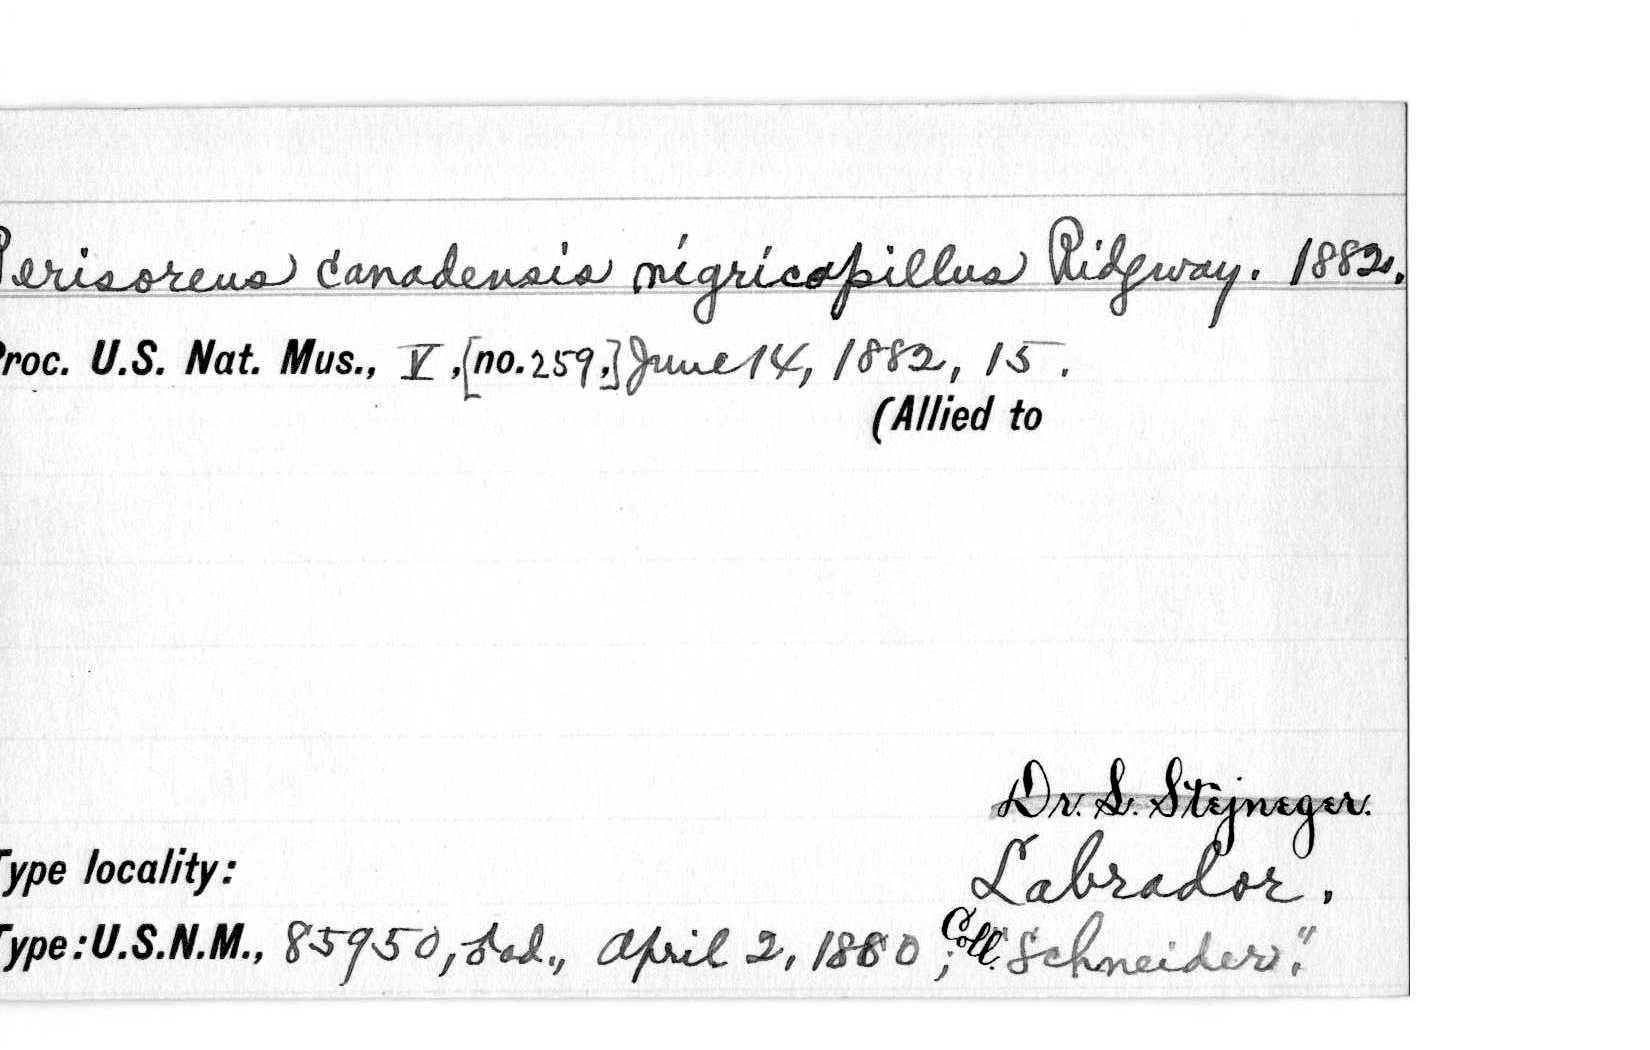 Perisoreus canadensis nigricapillus Ridgway. 1882.
Proc. U.S. Nat. Mus., V, [no. 259,] June 14, 1882, 15.
(Allied to
Dr. L. Stejneger.
Type locality: Labrador.
Type: U.S.N.M., 85950, ad., April 2, 1880; Coll. "Schneider".